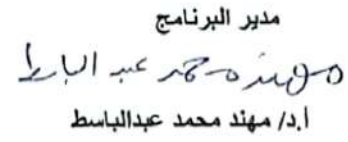 مدير البرنامج
مهند محمد عبد الباسط
أ.د/ مهند محمد عبدالباسط